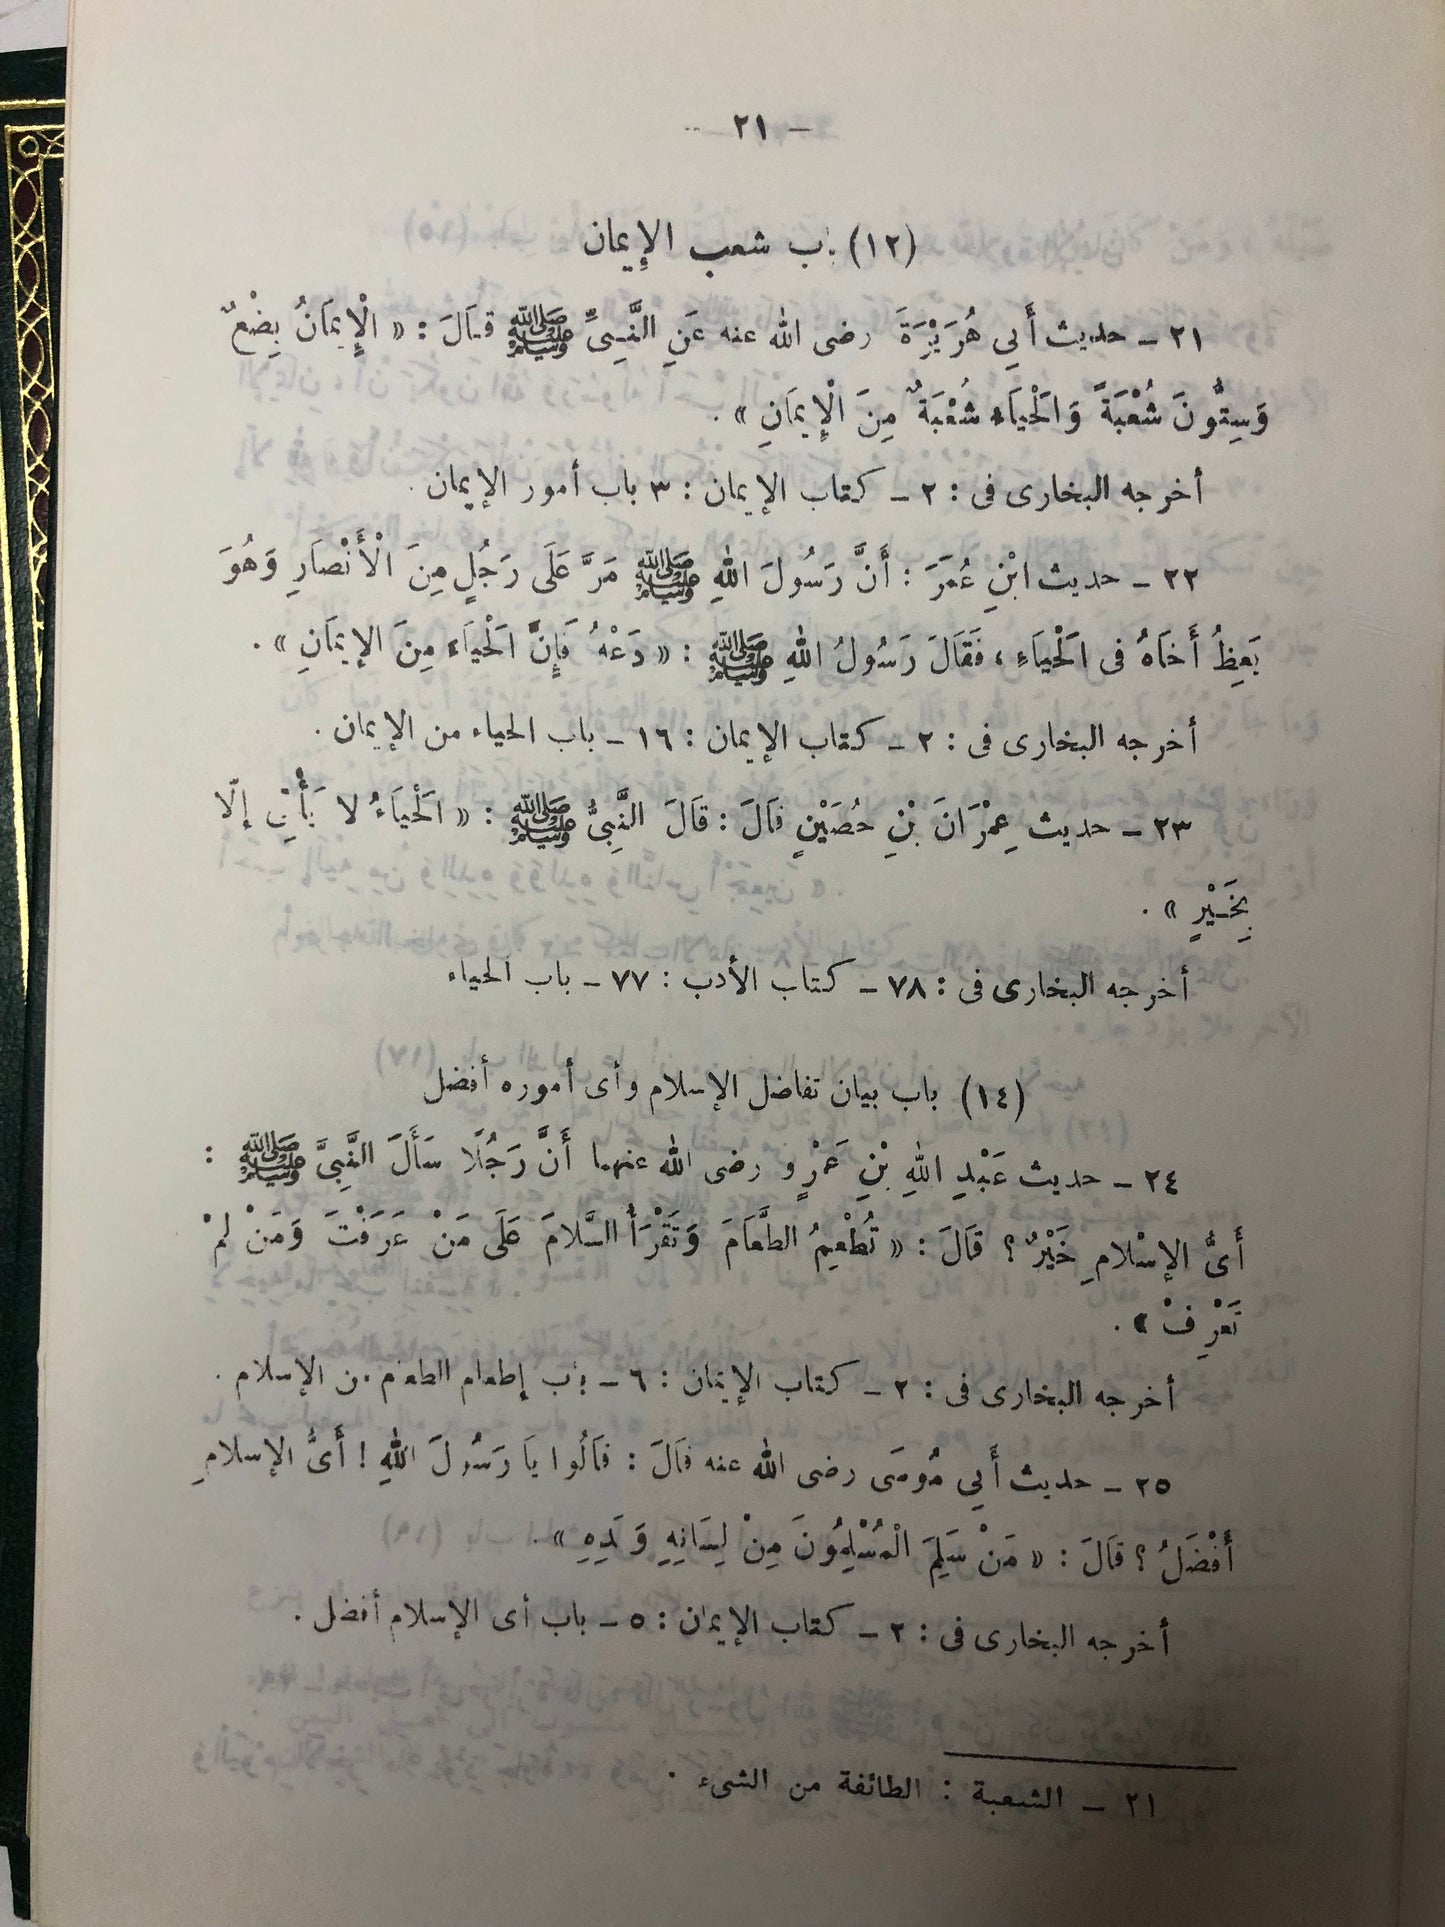 – ٢١ –
(١٢) باب شعب الإيمان
٢١ – حديث أَبِي هُرَيْرَةَ رضى الله عنه عَنِ النَّبِيِّ ﷺ قَالَ : « الْإِيمَانُ بِضْعٌ
وَسِتُّونَ شُعْبَةً وَالْحَيَاءُ شُعْبَةٌ مِنَ الْإِيمَانِ » .
أخرجه البخارى فى : ٢ – كتاب الإيمان : ٣ باب أمور الإيمان .
٢٢ – حديث ابْنِ عُمَرَ : أَنَّ رَسُولَ اللهِ ﷺ مَرَّ عَلَى رَجُلٍ مِنَ الْأَنْصَارِ وَهُوَ
يَعِظُ أَخَاهُ فى الْحَيَاءِ ، فَقَالَ رَسُولُ اللهِ ﷺ : « دَعْهُ فَإِنَّ الْحَيَاءَ مِنَ الإِيمَانِ » .
أخرجه البخارى فى : ٢ – كتاب الإيمان : ١٦ – باب الحياء من الإيمان .
٢٣ – حديث عِمْرَانَ بْنِ حُصَيْنٍ قَالَ : قَالَ النَّبِيُّ ﷺ : « الْحَيَاءُ لا يَأْتِي إلّا
بِخَيْرٍ » .
أخرجه البخارى فى : ٧٨ – كتاب الأدب : ٧٧ – باب الحياء
(١٤) باب بيان تفاضل الإسلام وأى أموره أفضل
٢٤ – حديث عَبْدِ اللهِ بْنِ عَمْرٍو رضى الله عنهما أَنَّ رَجُلًا سَأَلَ النَّبِيَّ ﷺ :
أَىُّ الإسْلامِ خَيْرٌ ؟ قَالَ : « تُطْعِمُ الطَّعَامَ وَتَقْرَأُ السَّلامَ عَلَى مَنْ عَرَفْتَ وَمَنْ لمْ
تَعْرِفْ » .
أخرجه البخارى فى : ٢ – كتاب الإيمان : ٦ – باب إطعام الطعام من الإسلام .
٢٥ – حديث أَبِي مُوسَى رضى الله عنه قَالَ : قَالُوا يَا رَسُولَ اللهِ ! أَىُّ الإسلامِ
أَفْضَلُ ؟ قَالَ : « مَنْ سَلِمَ الْمُسْلِمُونَ مِنْ لِسَانِهِ وَيَدِهِ » .
أخرجه البخارى فى : ٢ – كتاب الإيمان : ٥ – باب أى الإسلام أفضل .
٢١ – الشعبة : الطائفة من الشىء .